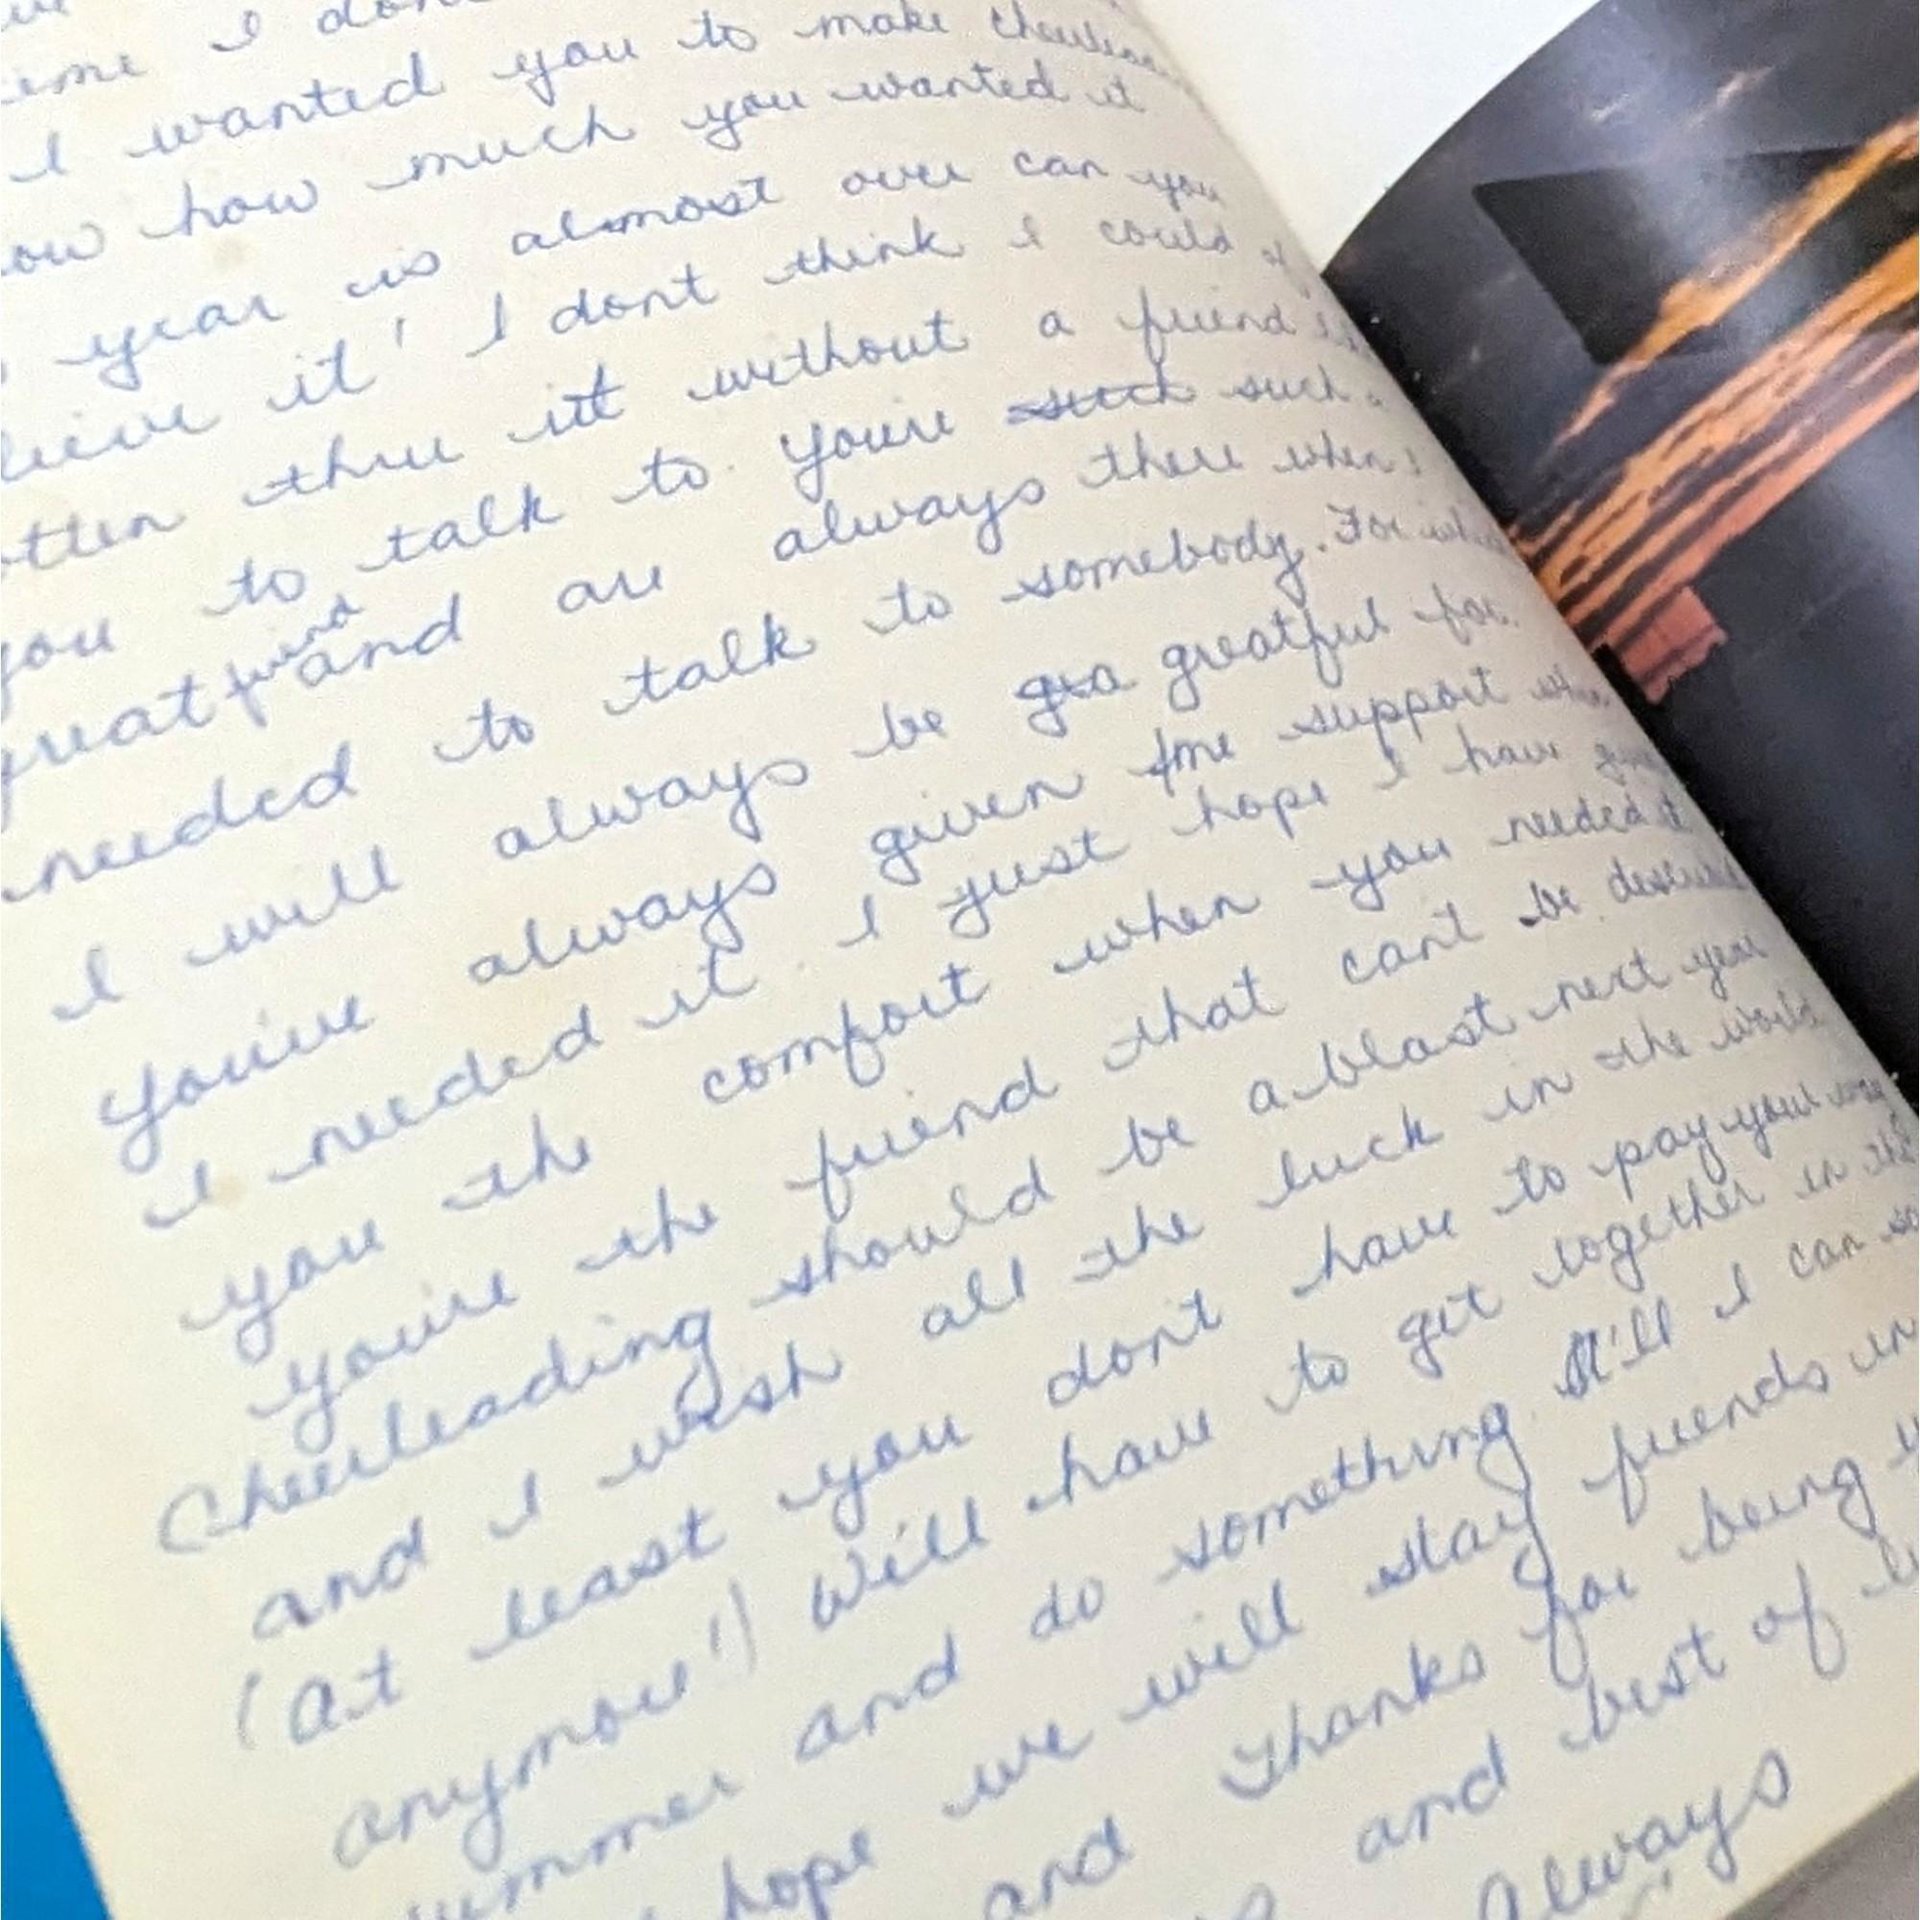 I don
I wanted you to make
how much you wanted it
year is almost over can you
it! I dont think I could
thru it without a friend
you to talk to. You're such such a
great friend and are always there when I
needed to talk to somebody. For
I will always be gra greatful for.
You've always given me support
I needed it. I just hope I have
you the comfort when you needed it
you're the friend that can't be
Cheerleading should be a blast next year
and I wish all the luck in the world
(At least you don't have to pay your way
anymore!) Will have to get together in the
and do something. I'll I can
hope we will stay friends in
and Thanks for being
and best of
Always